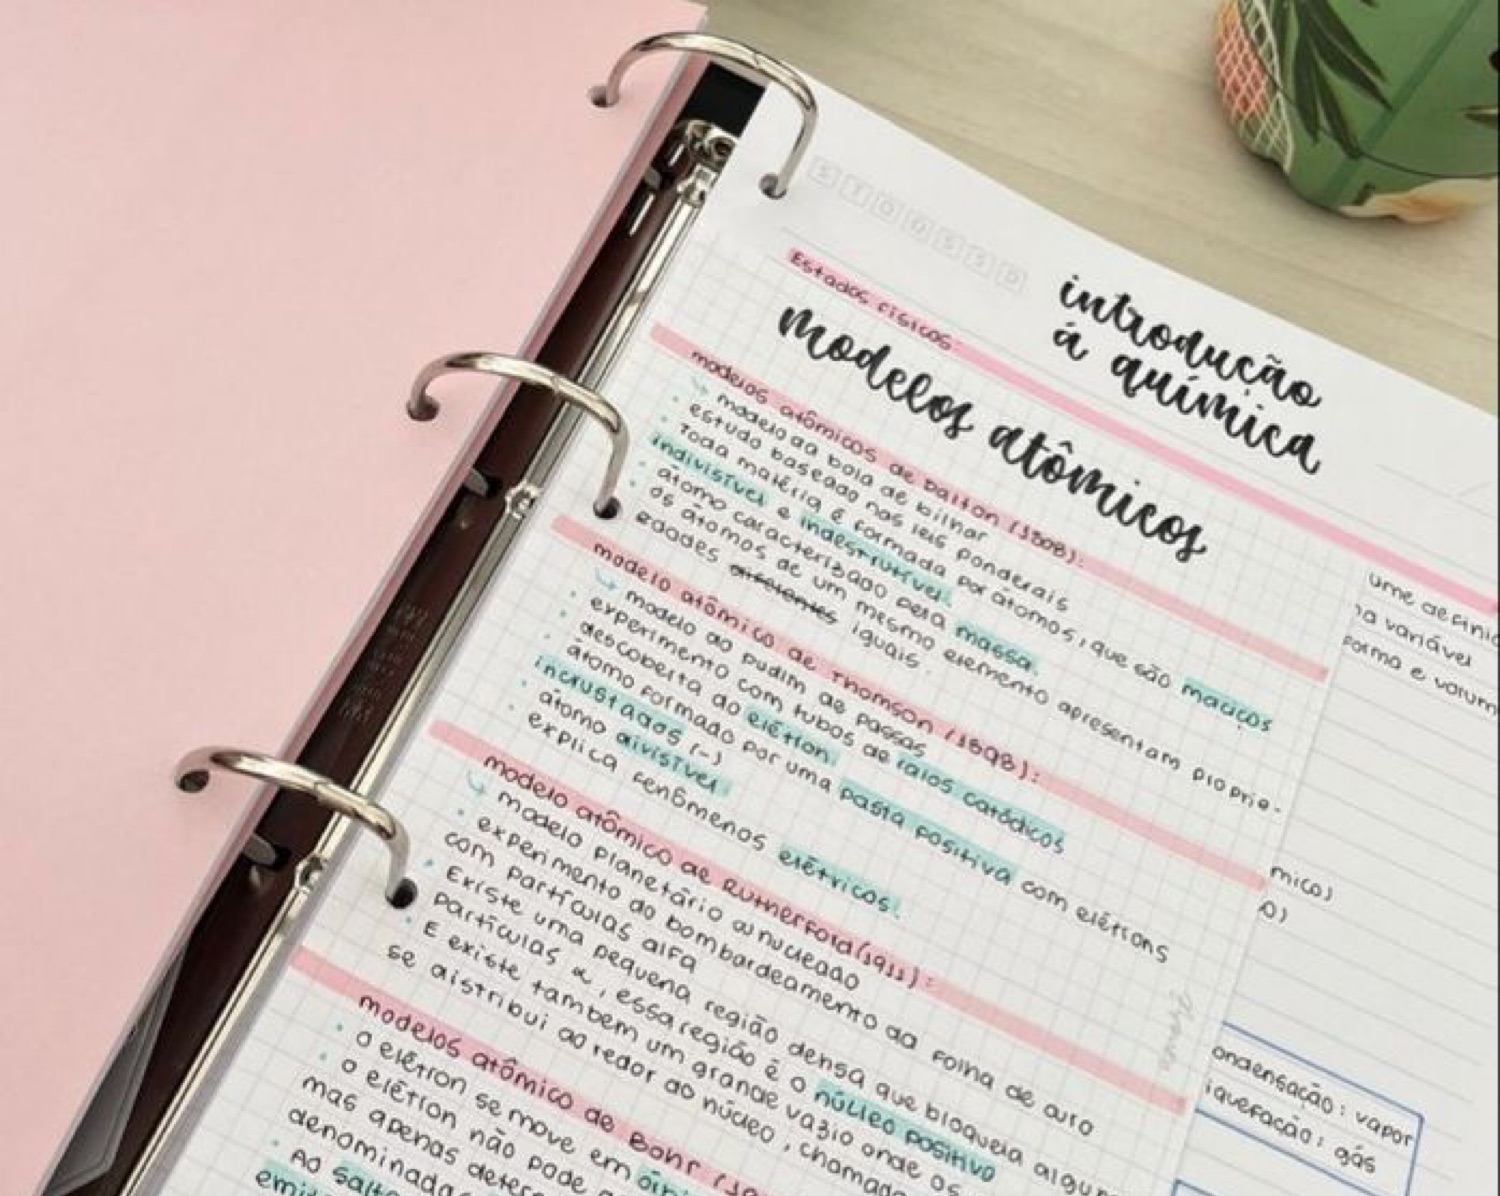 introdução
á química
Estados físicos:
modelos atômicos
modelos atômicos de Dalton (1808):
modelo da bola de bilhar
estudo baseado nas leis ponderais
Toda matéria é formada por átomos, que são maciços
indivisível e indestrutível.
átomo caracterizado pela massa.
os átomos de um mesmo elemento apresentam proprie-
edades diferentes iguais.
modelo atômico de Thomson (1898):
modelo do pudim de passas
experimento com tubos de raios catódicos
descoberta do elétron.
átomo formado por uma pasta positiva com elétrons
incrustados (-)
átomo divisível.
explica fenômenos elétricos.
modelo atômico de Rutherford (1911):
modelo planetário ou nucleado
experimento do bombardeamento da folha de ouro
com partículas alfa
Existe uma pequena região densa que bloqueia algum
partículas α, essa região é o núcleo positivo
E existe também um grande vazio onde os
se distribui ao redor do núcleo, chamada
modelos atômico de Bohr (19
o elétron se move em órbi
o elétron não pode
mas apenas deter
denominada
Ao salta
emi
ume definid
na variável
forma e volum
mico)
o)
ondensação: vapor
iquefação: gás